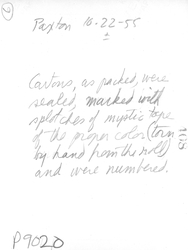 2
Paxton 16-22-55
Cartons, as packed, were
sealed, marked with
splotches of mystic tape
of the proper color (torn
by hand from the roll)
and were numbered.
108
P9020